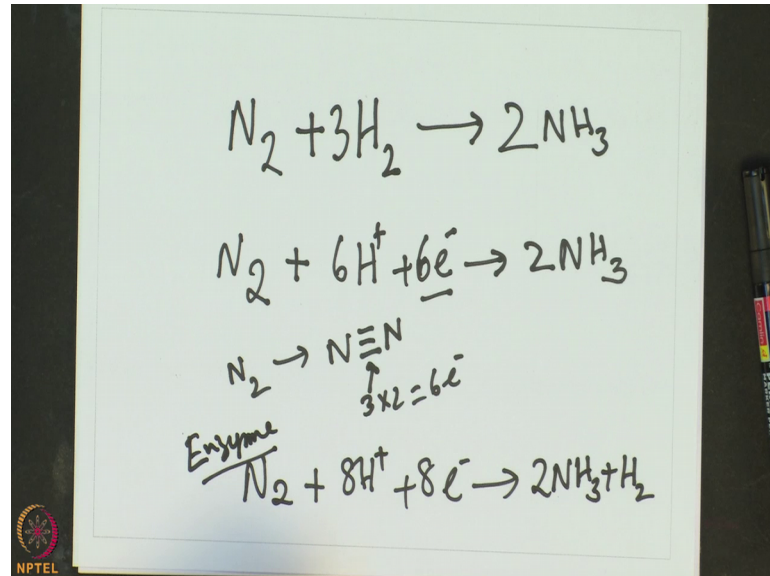 N₂ + 3H₂ → 2NH₃
N₂ + 6H⁺ + 6e⁻ → 2NH₃
N₂ → N≡N
↑
3×2=6e⁻
Enzyme
N₂ + 8H⁺ + 8e⁻ → 2NH₃+H₂
NPTEL